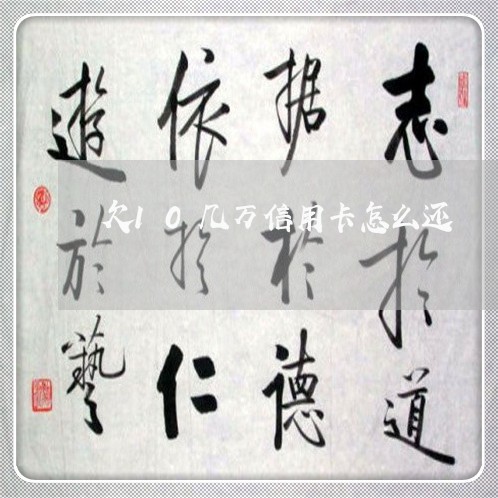 志扵道
据於德
依扵仁
遊於藝
欠10几万信用卡怎么还